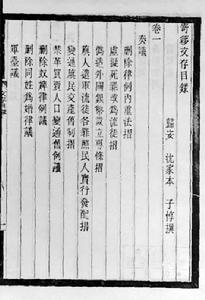 寄簃文存目錄
歸安 沈家本 子惇撰
卷一
奏議
刪除律例內重法摺
虛擬死罪改為流徒摺
偽造外國銀幣設立專條摺
旗人遣軍流徒各罪照民人實行發配摺
變通旗民交產舊制摺
禁革買賣人口變通舊例議
刪除奴婢律例議
刪除同姓為婚律議
軍臺議